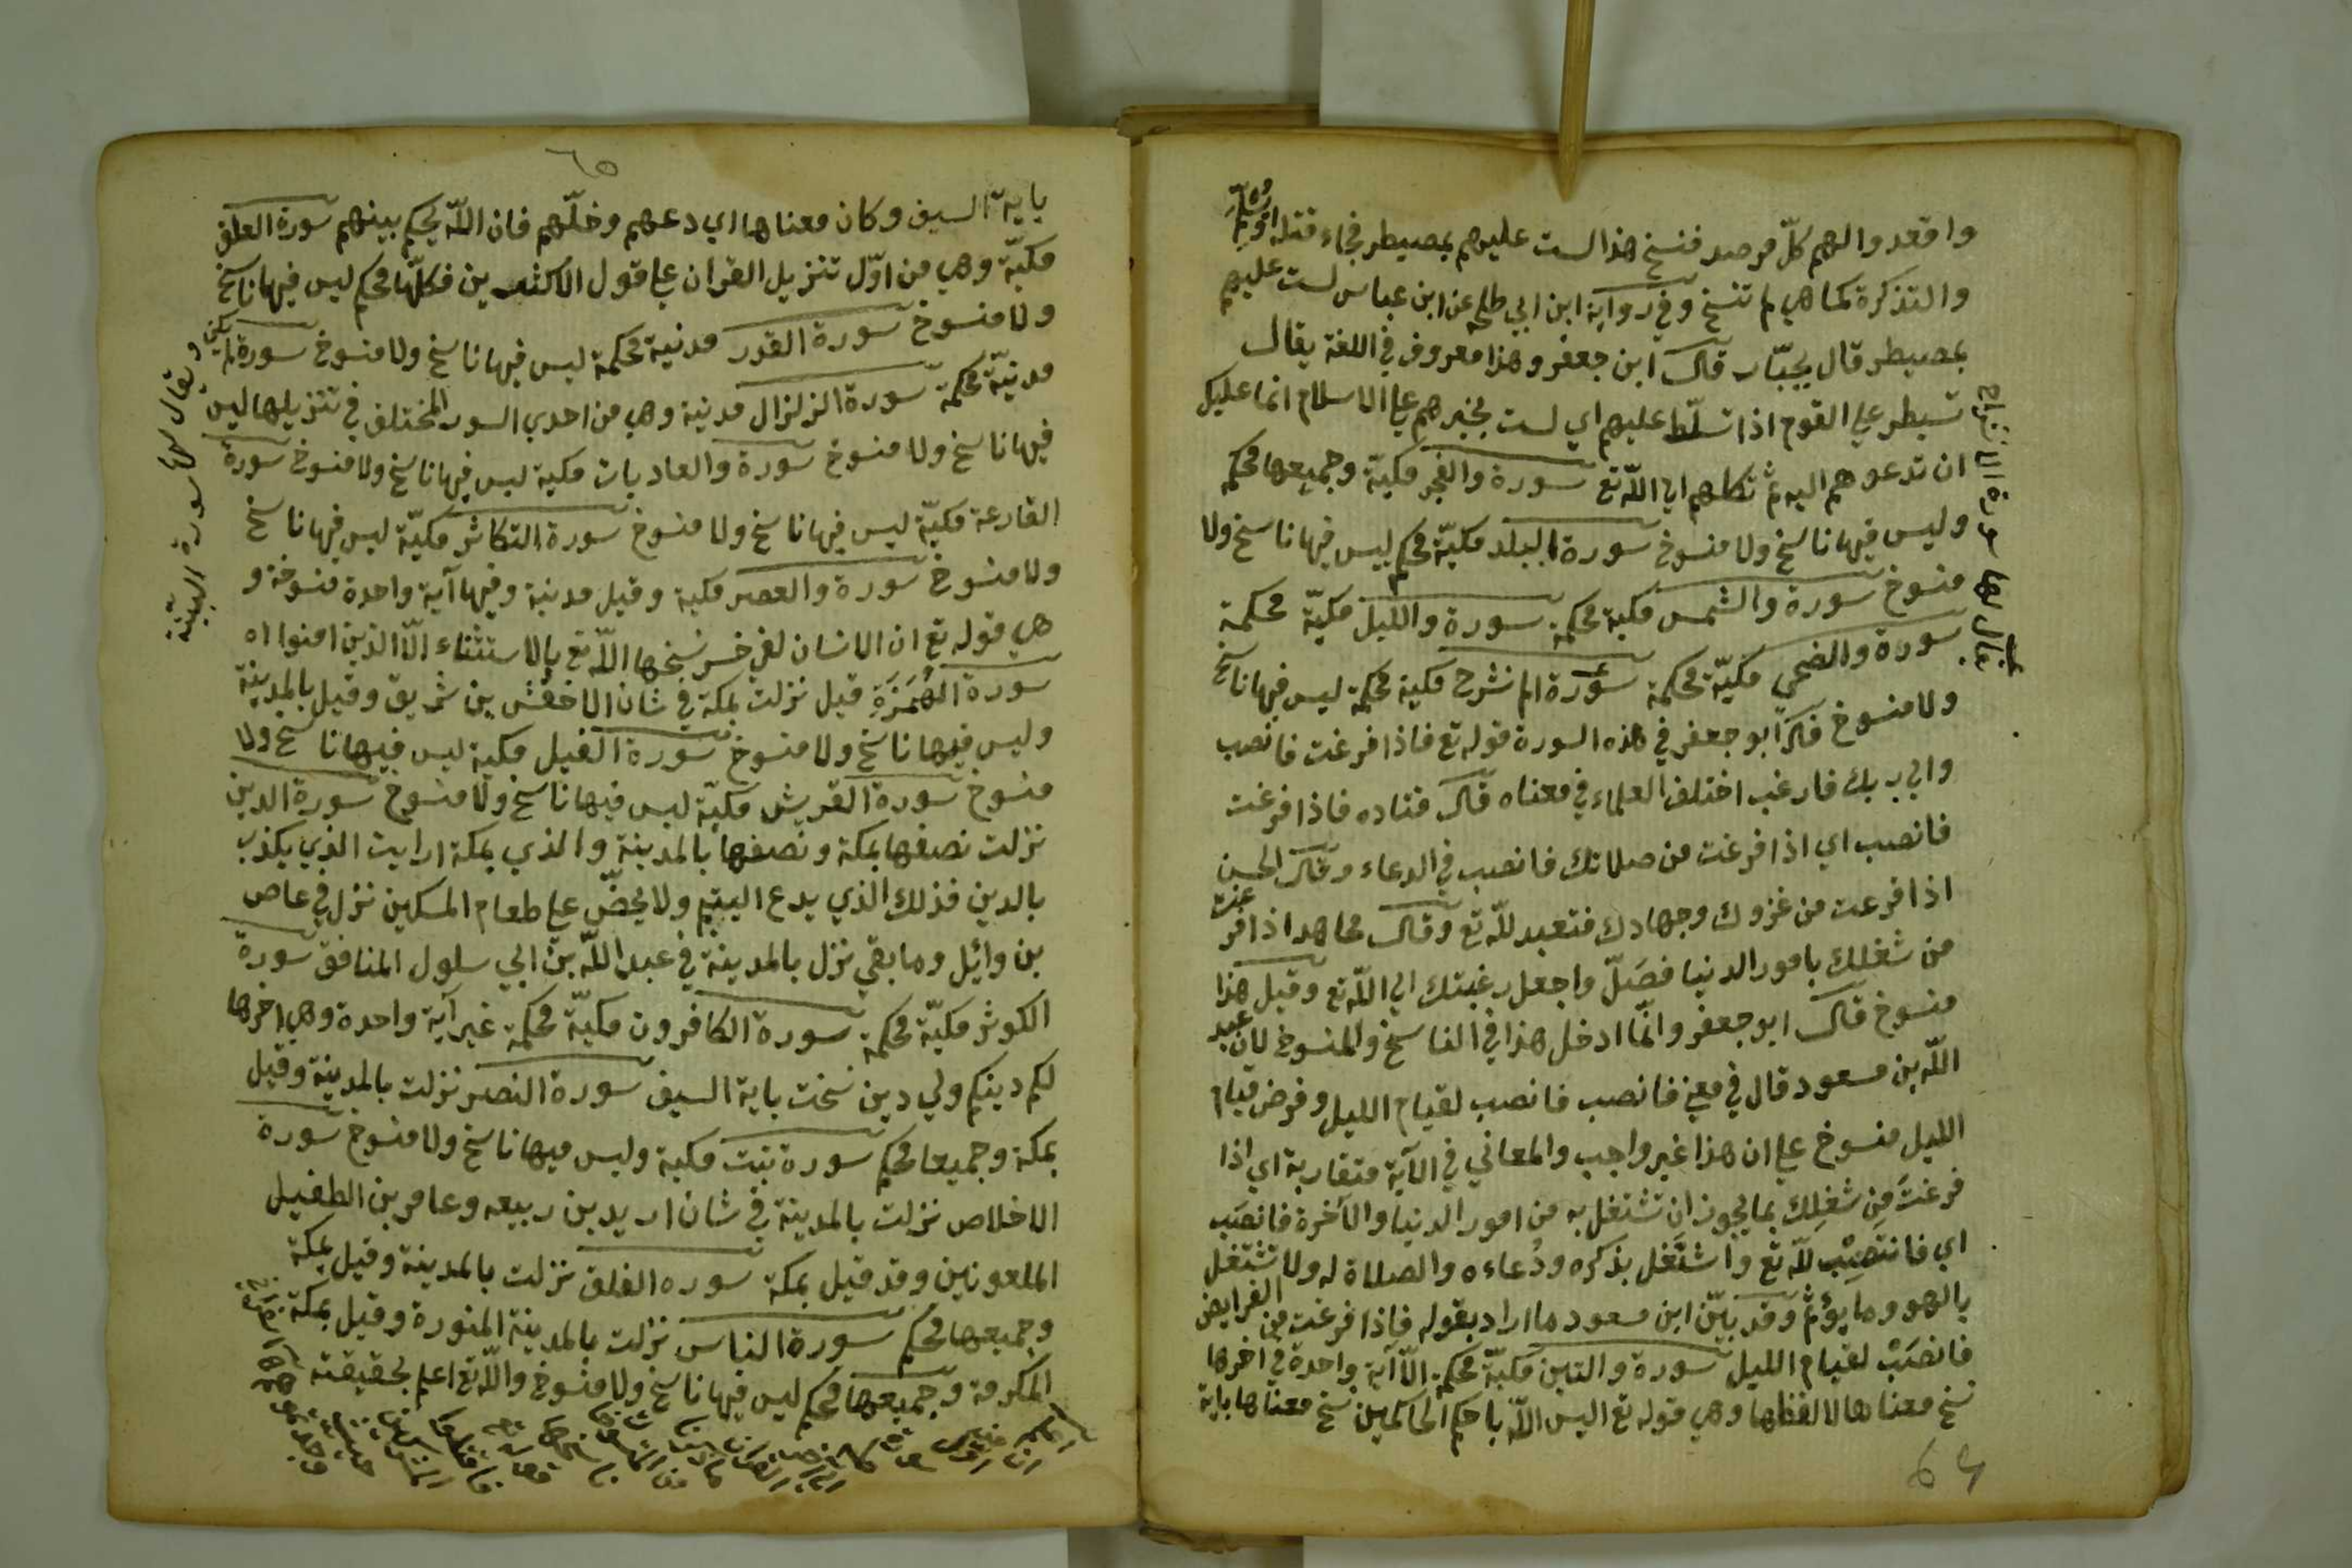 واقعدوا لهم كلّ مرصد فنسخ هذا لست عليهم بمصيطر فجاء قتله او يسلم
والتذكرة كما هي لم تنسخ وفي رواية ابن ابي طلحه عن ابن عباس لست عليهم
بمصيطر قال بجبّار قال ابن جعفر وهذا معروف في اللغة يقال
تسيطر علي القوم اذا تسلّط عليهم اي لست بمجبرهم علي الاسلام انما عليك
ان تدعوهم اليه ثم تكلهم الي اللّه تع سورة والفجر مكيّة وجميعها محكم
وليس فيها ناسخ ولا منسوخ سورة البلد مكيّة محكم ليس فيها ناسخ ولا
منسوخ سورة والشمس مكية محكمة سورة والليل مكيّة محكمة
سورة والضحي مكيّة محكمة سورة الم نشرح مكية محكمة ليس فيها ناسخ
ولا منسوخ ذكر ابو جعفر في هذه السورة قوله تع فاذا فرغت فانصب
والي ربك فارغب اختلف العلماء في معناه قال قتاده فاذا فرغت
فانصب اي اذا فرغت من صلاتك فانصب في الدعاء وقال الحسن
اذا فرغت من غزوك وجهادك فتعبد للّه تع وقال مجاهد اذا فرغت
من شغلك بامور الدنيا فصَلّ واجعل رغبتك الي اللّه تع وقيل هذا
منسوخ قال ابو جعفر وانّما ادخل هذا في الناسخ والمنسوخ لان عبد
اللّه بن مسعود قال في معني فانصب فانصب لقيام الليل وفرض قيام
الليل منسوخ علي ان هذا غير واجب والمعاني في الآية متقاربة اي اذا
فرغتَ مِن شغلِك بما يجوز ان تشتغل به من امور الدنيا والآخرة فانصَب
اي فانتصِبْ للّه تع واشتَغل بذكره ودُعاءه والصلاة له ولا تشتغل
بالهو وما يؤثم وقد بيّن ابن مسعود ما اراد بقوله فاذا فرغت من الفرايض
فانصَبْ لقيام الليل سورة والتين مكيّة محكمة الّا آية واحدة في اخرها
نسخ معناها لا لفظها وهي قوله تع اليس اللّه باحكم الحاكمين نسخ معناها باية
يقال لها سورة الانشراح
٦٤
٦٥
باية السيف وكان معناها اي دعهم وخلّهم فان اللّه يحكم بينهم سورة العلق
مكيّة وهي من اوّل تنزيل القران علي قول الاكثرين فكلّها محكم ليس فيها ناسخ
ولا منسوخ سورة القدر مدنية محكمة ليس فيها ناسخ ولا منسوخ سورة لم يكن
مدنيّة محكمة سورة الزلزال مدنية وهي من احدي السور المختلف في تنزيلها ليس
فيها ناسخ ولا منسوخ سورة والعاديات مكية ليس فيها ناسخ ولا منسوخ سورة
القارعة مكيّة ليس فيها ناسخ ولا منسوخ سورة التكاثر مكيّة ليس فيها ناسخ
ولا منسوخ سورة والعصر مكية وقيل مدنية وفيها آية واحدة منسوخة و
هي قوله تع ان الانسان لفي خسر نسخها اللّه تع بالاستثناء الّا الذين امنوا اه
سورة الهُمَزَةِ قيل نزلت بمكة في شان الاخفش بن شريق وقيل بالمدينة
وليس فيها ناسخ ولا منسوخ سورة الفيل مكية ليس فيها ناسخ ولا
منسوخ سورة القريش مكيّة ليس فيها ناسخ ولا منسوخ سورة الدين
نزلت نصفها بمكة ونصفها بالمدينة والذي بمكة ارايت الذي يكذب
بالدين فذلك الذي يدع اليتيم ولا يحضّ علي طعام المسكين نزل في عاص
بن وائل وما بقي نزل بالمدينة في عبد اللّه بن ابي سلول المنافق سورة
الكوثر مكيّة محكمة سورة الكافرون مكيّة محكمة غير آية واحدة وهي اخرها
لكم دينكم ولي دين نسخت باية السيف سورة النصر نزلت بالمدينة وقيل
بمكة وجميعا محكم سورة تبت مكية وليس فيها ناسخ ولا منسوخ سورة
الاخلاص نزلت بالمدينة في شان اربد بن ربيعه وعامر بن الطفيل
الملعونين وقد قيل بمكة سوره الفلق نزلت بالمدينة وقيل بمكة
وجميعها محكم سورة الناس نزلت بالمدينة المنورة وقيل بمكة
المكرمة وجميعها محكم ليس فيها ناسخ ولا منسوخ واللّه تع اعلم بحقيقته
ويقال لها سورة البيّنة